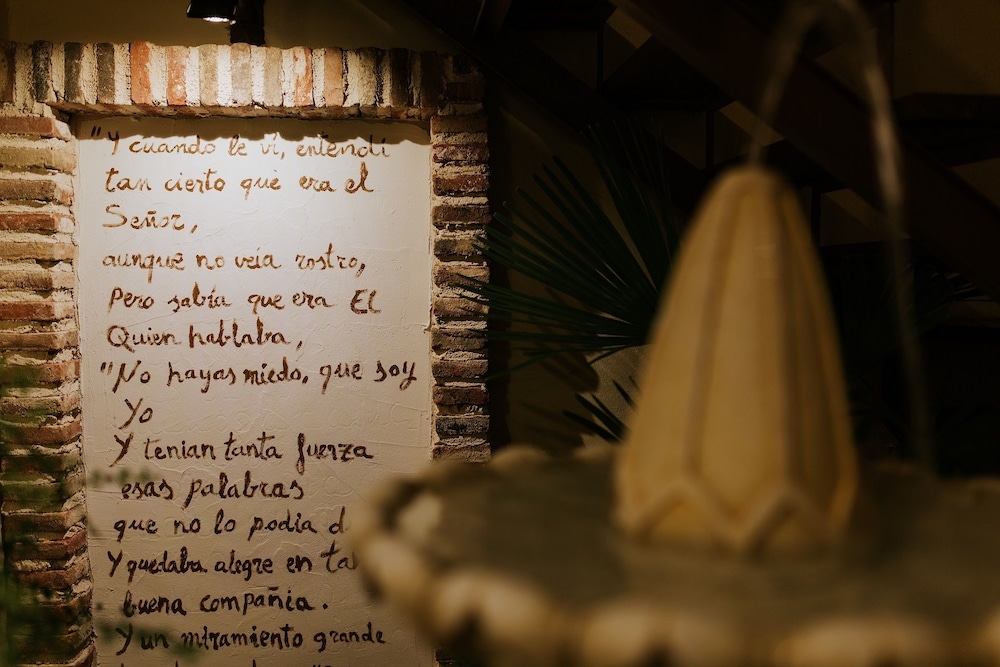 "Y cuando le ví, entendí
tan cierto que era el
Señor,
aunque no veía rostro,
pero sabía que era EL
Quien hablaba,
"No hayas miedo, que soy
Yo
Y tenian tanta fuerza
esas palabras
que no lo podia d
Y quedaba alegre en ta
buena compañia.
Y un miramiento grande